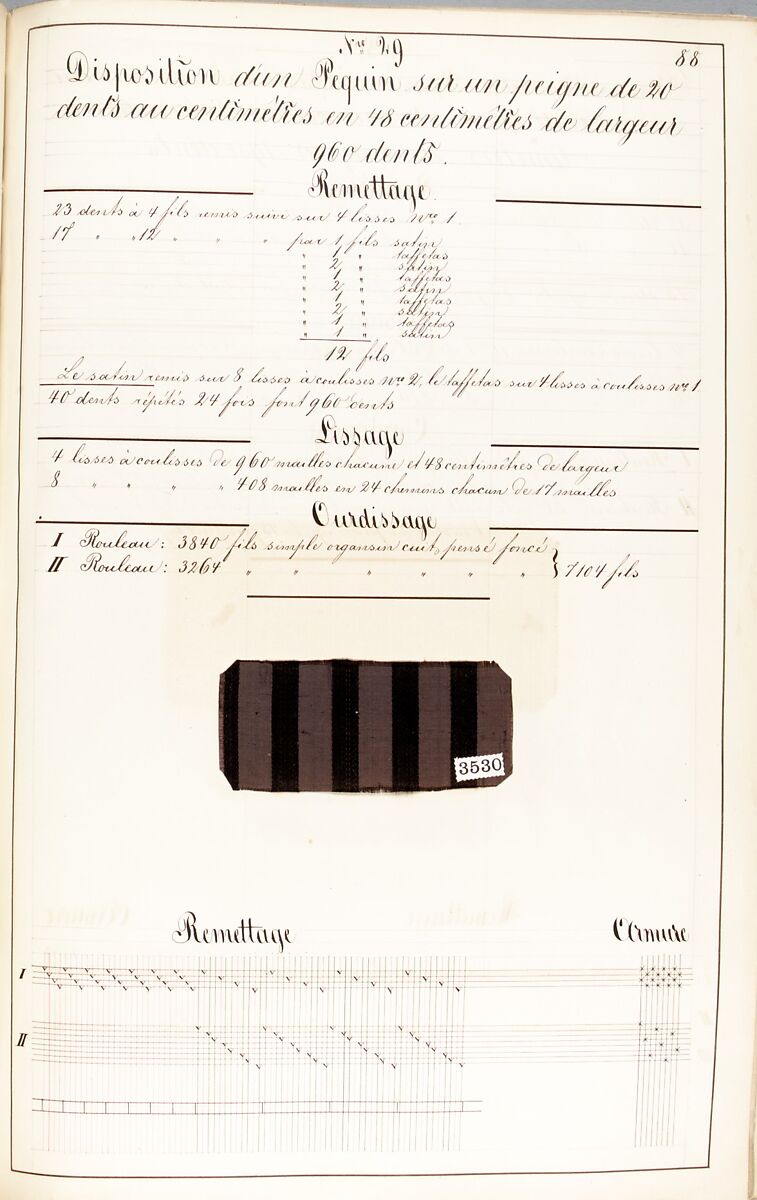 Nro 29
88
Disposition d'un Pequin sur un peigne de 20
dents au centimétres en 48 centimétres de largeur
960 dents.
Remettage.
23 dents à 4 fils remis suivi sur 4 lisses Nro 1.
17 " " 12 " " " par 1 fils satin
" 1 " taffetas
" 2 " satin
" 1 " taffetas
" 2 " satin
" 1 " taffetas
" 2 " satin
" 1 " taffetas
" 1 " satin
12 fils
Le satin remis sur 8 lisses à coulisses Nro 2, le taffetas sur 4 lisses à coulisses Nro 1
40 dents répétés 24 fois font 960 dents
Lissage
4 lisses à coulisses de 960 mailles chacune et 48 centimétres de largeur
8 " " " " 408 mailles en 24 chemins chacun de 17 mailles
Ourdissage
I Rouleau: 3840 fils simple organsin cuit, pensé foncé
II Rouleau: 3264 " " " " " " } 7104 fils
3530
Remettage
Armure
I
II